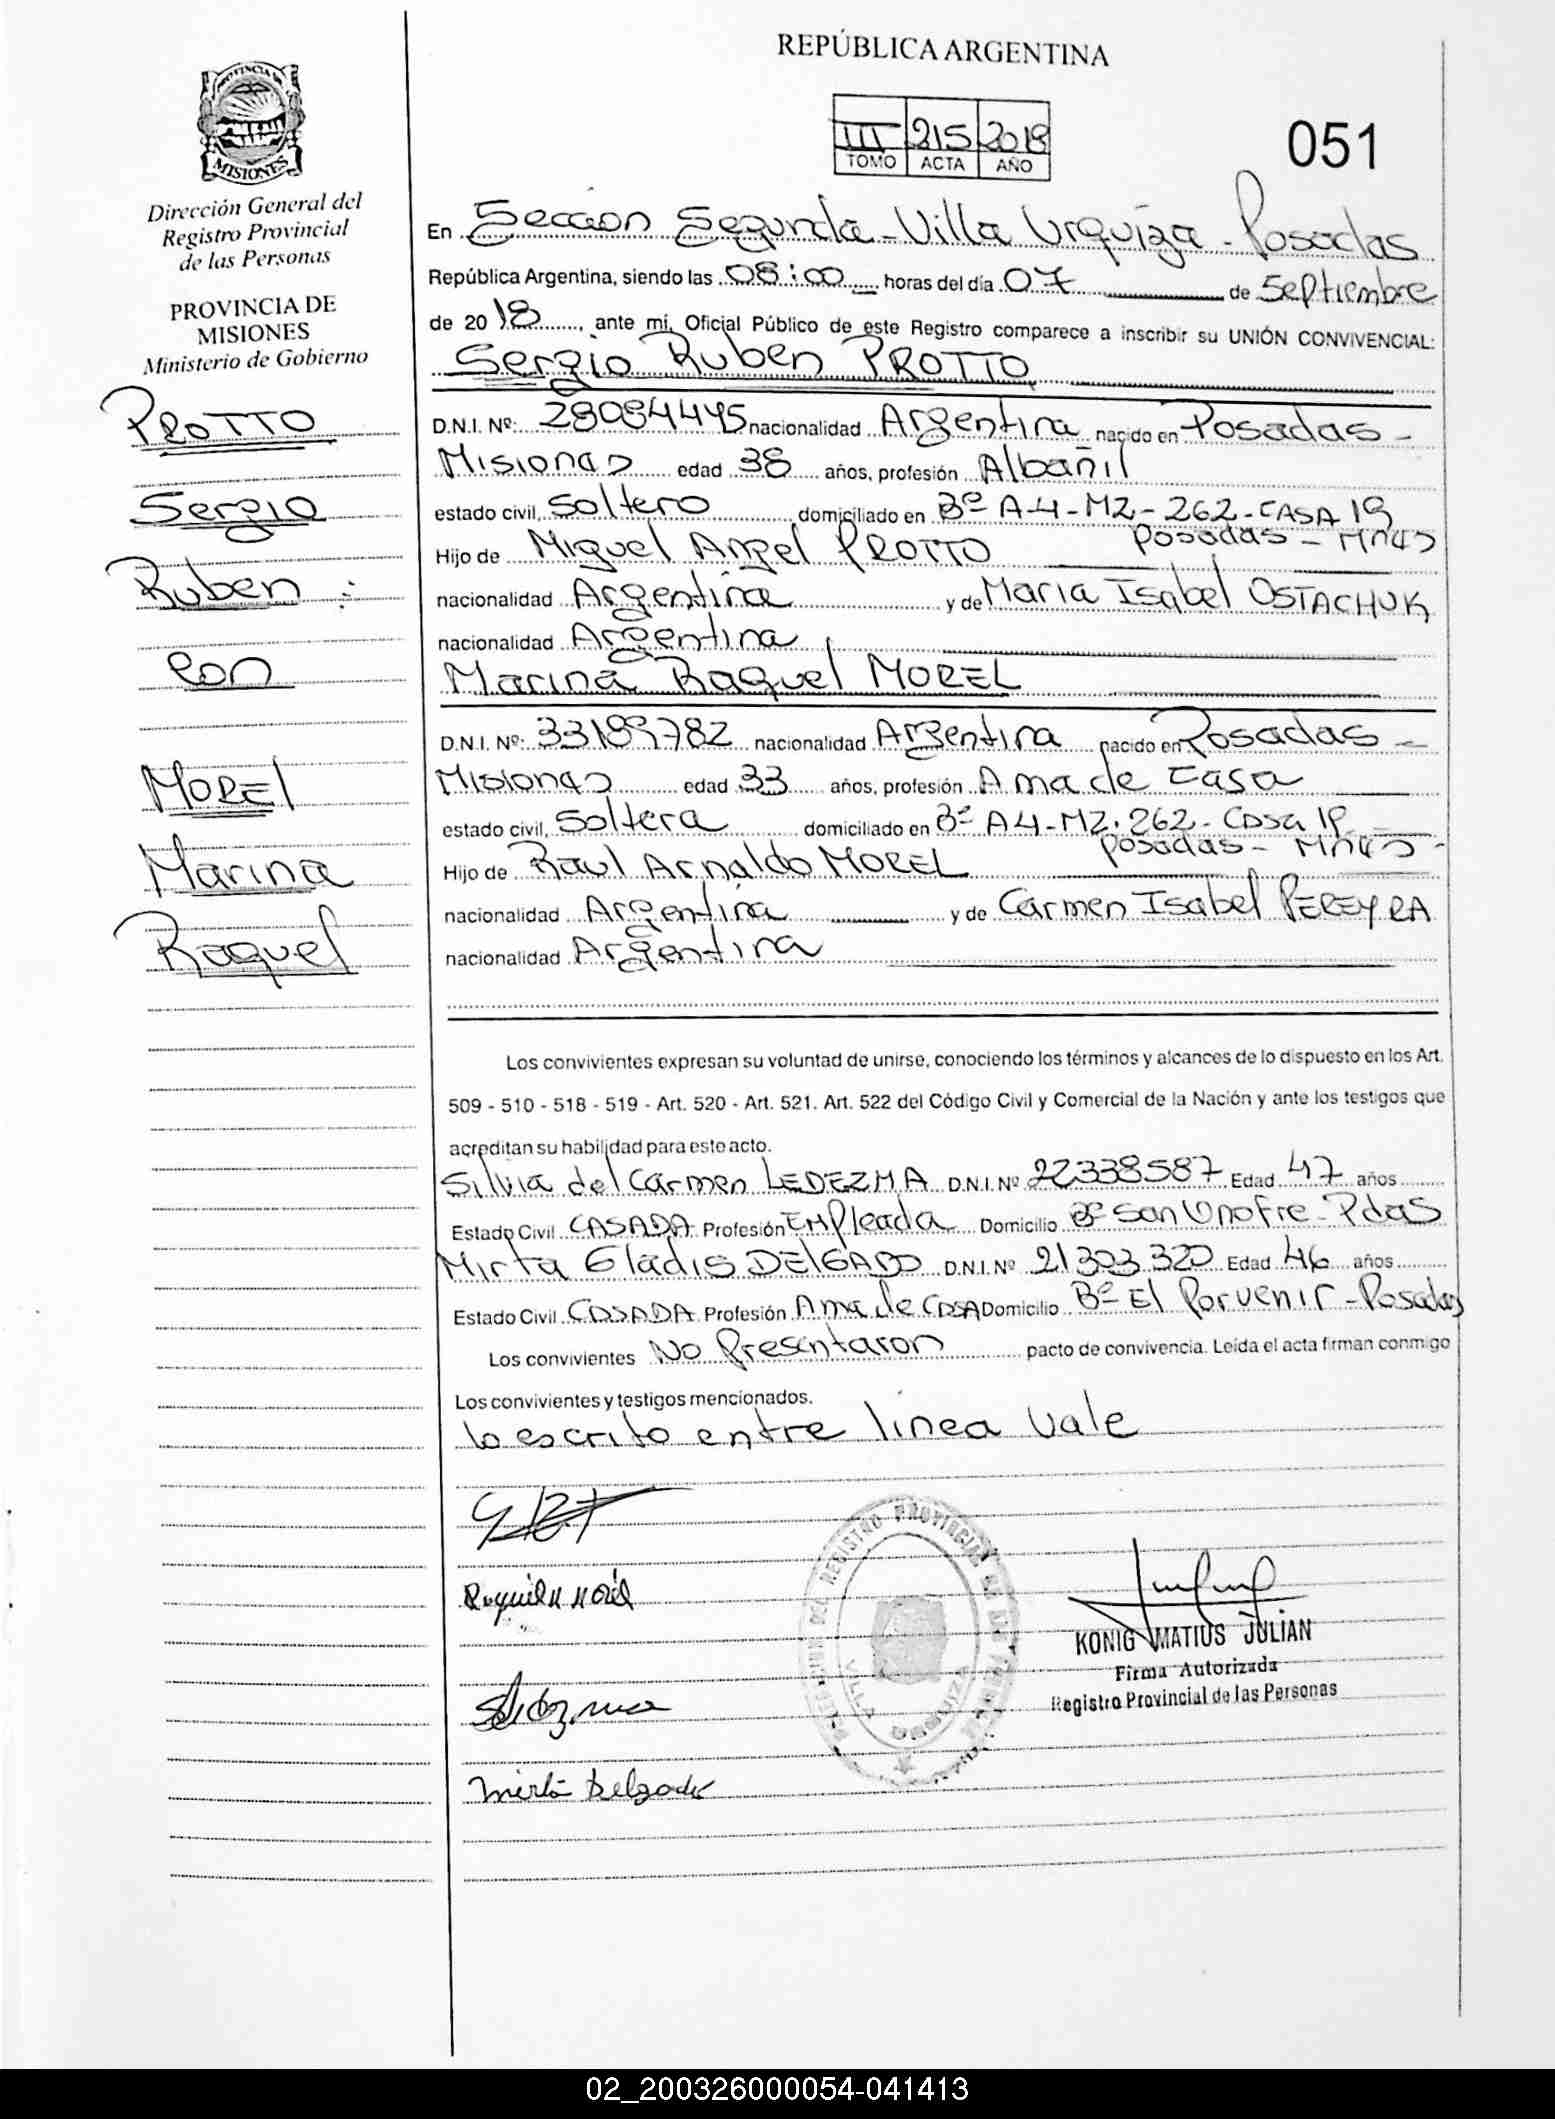 REPÚBLICA ARGENTINA
III 215 2018
TOMO ACTA AÑO
051
PROVINCIA DE
MISIONES
Dirección General del
Registro Provincial
de las Personas
PROVINCIA DE
MISIONES
Ministerio de Gobierno
PROTTO
Sergio
Ruben :
con
MOREL
Marina
Raquel
En Seccion Segunda - Villa Urquiza - Posadas
República Argentina, siendo las 08:00 horas del día 07 de Septiembre
de 2018, ante mi, Oficial Público de este Registro comparece a inscribir su UNIÓN CONVIVENCIAL:
Sergio Ruben PROTTO
D.N.I. Nº: 28084445 nacionalidad Argentina nacido en Posadas -
Misiones edad 38 años, profesión Albañil
estado civil, Soltero domiciliado en Bº A-4 - MZ - 262 - CASA 19
Posadas - Mnes
Hijo de Miguel Angel PROTTO
nacionalidad Argentina y de Maria Isabel OSTACHUK
nacionalidad Argentina
Marina Raquel MOREL
D.N.I. Nº: 33189782 nacionalidad Argentina nacido en Posadas -
Misiones edad 33 años, profesión Ama de Casa
estado civil, Soltera domiciliado en Bº A4 - MZ. 262 - Casa 19
Posadas - Mnes -
Hijo de Raul Arnaldo MOREL
nacionalidad Argentina y de Carmen Isabel PEREYRA
nacionalidad Argentina
Los convivientes expresan su voluntad de unirse, conociendo los términos y alcances de lo dispuesto en los Art.
509 - 510 - 518 - 519 - Art. 520 - Art. 521. Art. 522 del Código Civil y Comercial de la Nación y ante los testigos que
acreditan su habilidad para este acto.
Silvia del Carmen LEDEZMA D.N.I. Nº 22338587 Edad 47 años
Estado Civil CASADA Profesión EMPleada Domicilio Bº San Onofre - Pdas
Mirta Gladis DELGADO D.N.I. Nº 21303320 Edad 46 años
Estado Civil CASADA Profesión Ama de CASA Domicilio Bº El Porvenir - Posadas
Los convivientes No Presentaron pacto de convivencia. Leída el acta firman conmigo
Los convivientes y testigos mencionados.
lo escrito entre línea vale
Mirta Delgado
KONIG MATIUS JULIAN
Firma Autorizada
Registro Provincial de las Personas
02_200326000054-041413